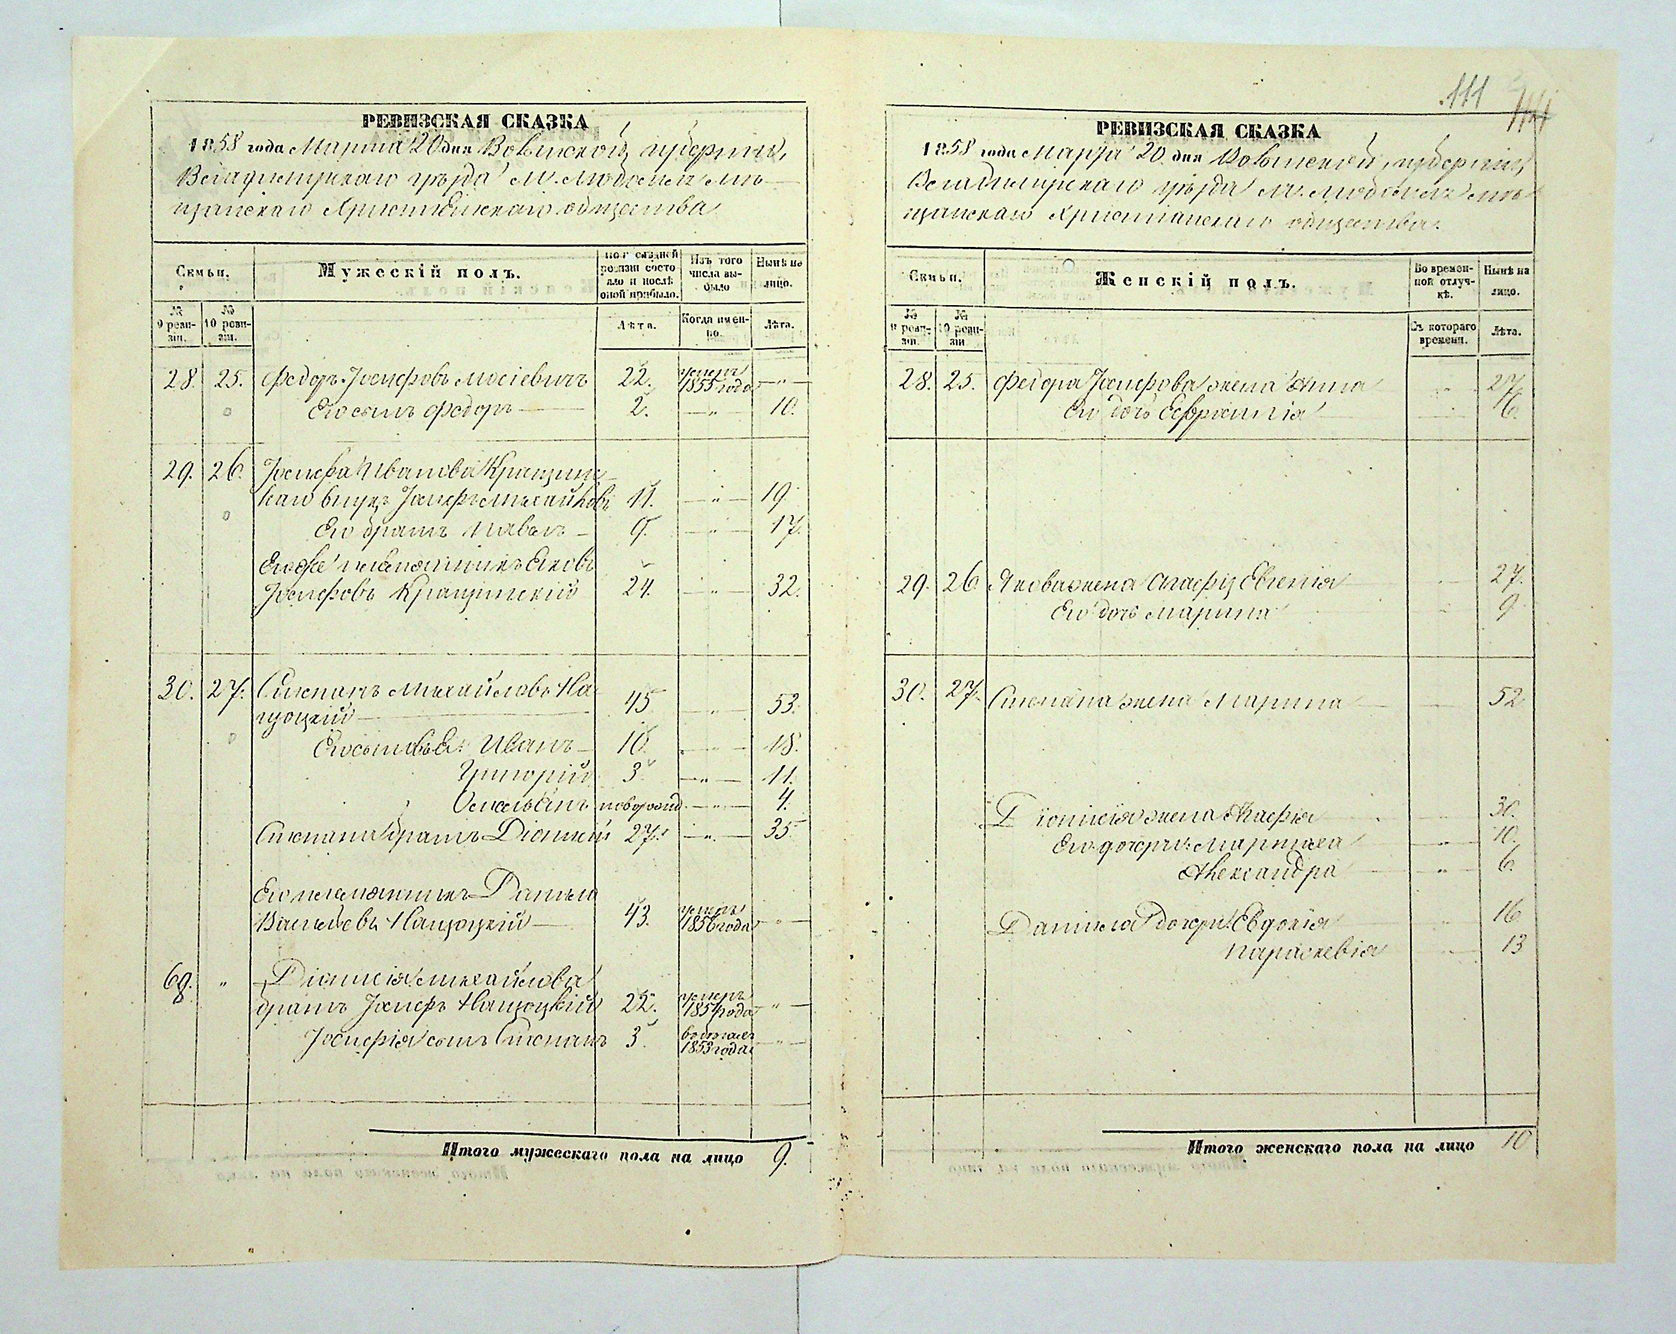 111
РЕВИЗСКАЯ СКАЗКА
1858 года Марта 20 дня Волынской губернии,
Владимирскаго уѣзда м. Любомля мѣ-
щанскаго Христіанскаго общества
Семьи.
Мужескій полъ.
По послѣдней ревизіи состояло и послѣ оной прибыло.
Изъ того числа выбыло
Нынѣ на лицо.
№ 9 ревизіи.
№ 10 ревизіи.
Лѣта.
Когда именно.
Лѣта.
28. 25. Федоръ Іосифовъ Мосіевичъ 22. умеръ 1855 года - " -
Его сынъ Федоръ 2. - " - 10.
29. 26. Іосифа Иванова
внукъ Іосифъ Михайловъ 11. - " - 19.
Его братъ Павелъ 9. - " - 17.
Его же племянникъ Яковъ
Іосифовъ 24. - " - 32.
30. 27. Степанъ Михайловъ На-
45 - " - 53.
Его сыновья: Иванъ 10. - " - 18.
Григорій 3. - " - 11.
новорожд. - " - 4.
Степана братъ Діонисій 27. - " - 35.
Его племянникъ Данило
Васильевъ 43. умеръ 1856 года - " -
69. " Діонисія Михайлова
братъ Іосифъ 22. умеръ 1854 года - " -
Іосифа сынъ Степанъ 3. 1853 года - " -
Итого мужескаго пола на лицо 9.
РЕВИЗСКАЯ СКАЗКА
1858 года Марта 20 дня Волынской губерніи,
Владимирскаго уѣзда м. Любомля мѣ-
щанскаго Христіанскаго общества.
Семьи.
Женскій полъ.
Во временной отлучкѣ.
Нынѣ на лицо.
№ 9 ревизіи.
№ 10 ревизіи
Съ котораго времени.
Лѣта.
28. 25. Федора Іосифова жена Анна 27.
Его дочь Ефросинія 6.
29. 26. Якова жена Евгенія 27.
Его дочь Марина 9.
30. 27. Степана жена Марина 52.
Діонисія жена Агафія 30.
Его дочери: 10.
Александра 6.
Данила дочери: Евдокія 16
Параскевія 13
Итого женскаго пола на лицо 10